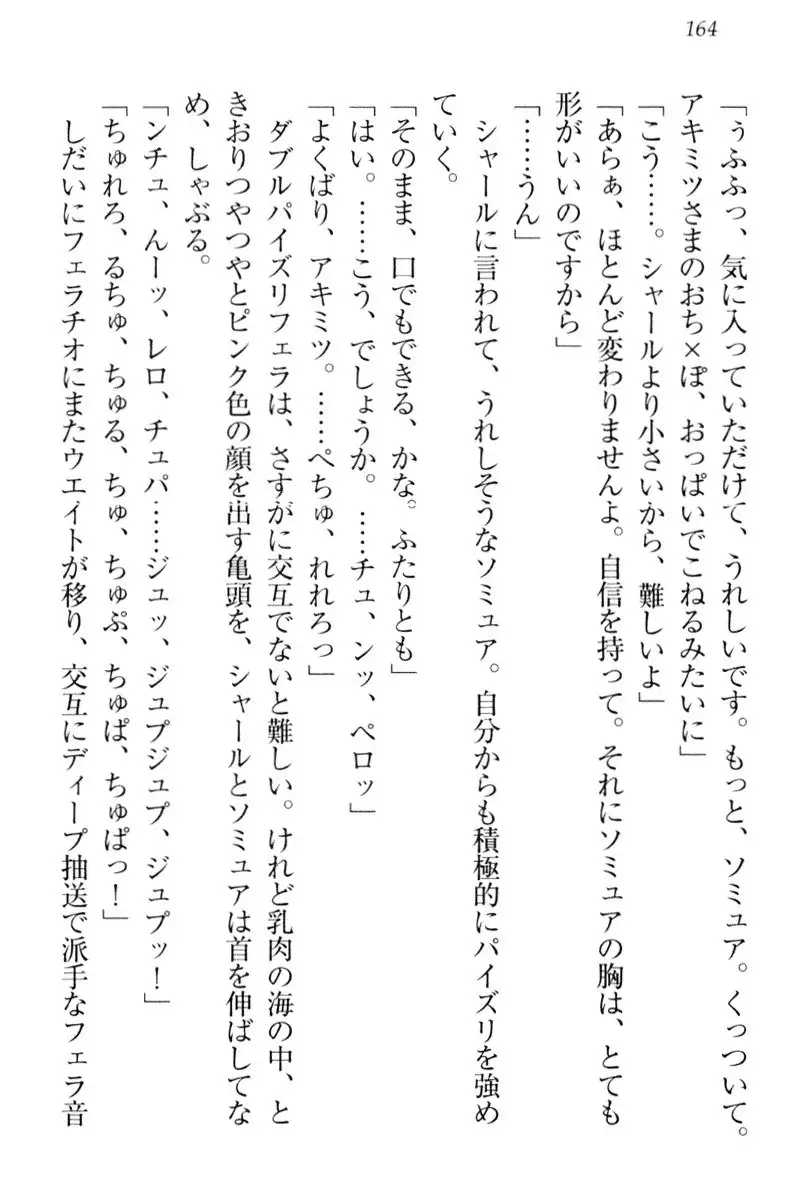 164
「ぅふふっ、気に入っていただけて、うれしいです。もっと、ソミュア。くっついて。
アキミツさまのおち×ぽ、おっぱいでこねるみたいに」
「こう……。シャールより小さいから、難しいよ」
「あらぁ、ほとんど変わりませんよ。自信を持って。それにソミュアの胸は、とても
形がいいのですから」
「……うん」
シャールに言われて、うれしそうなソミュア。自分からも積極的にパイズリを強め
ていく。
「そのまま、口でもできる、かな。ふたりとも」
「はい。……こう、でしょうか。……チュ、ンッ、ペロッ」
「よくばり、アキミツ。……ぺちゅ、れれろっ」
ダブルパイズリフェラは、さすがに交互でないと難しい。けれど乳肉の海の中、と
きおりつやつやとピンク色の顔を出す亀頭を、シャールとソミュアは首を伸ばしてな
め、しゃぶる。
「ンチュ、んーッ、レロ、チュパ……ジュッ、ジュプジュプ、ジュプッ！」
「ちゅれろ、るちゅ、ちゅる、ちゅ、ちゅぷ、ちゅぱ、ちゅぱっ！」
しだいにフェラチオにまたウエイトが移り、交互にディープ抽送で派手なフェラ音